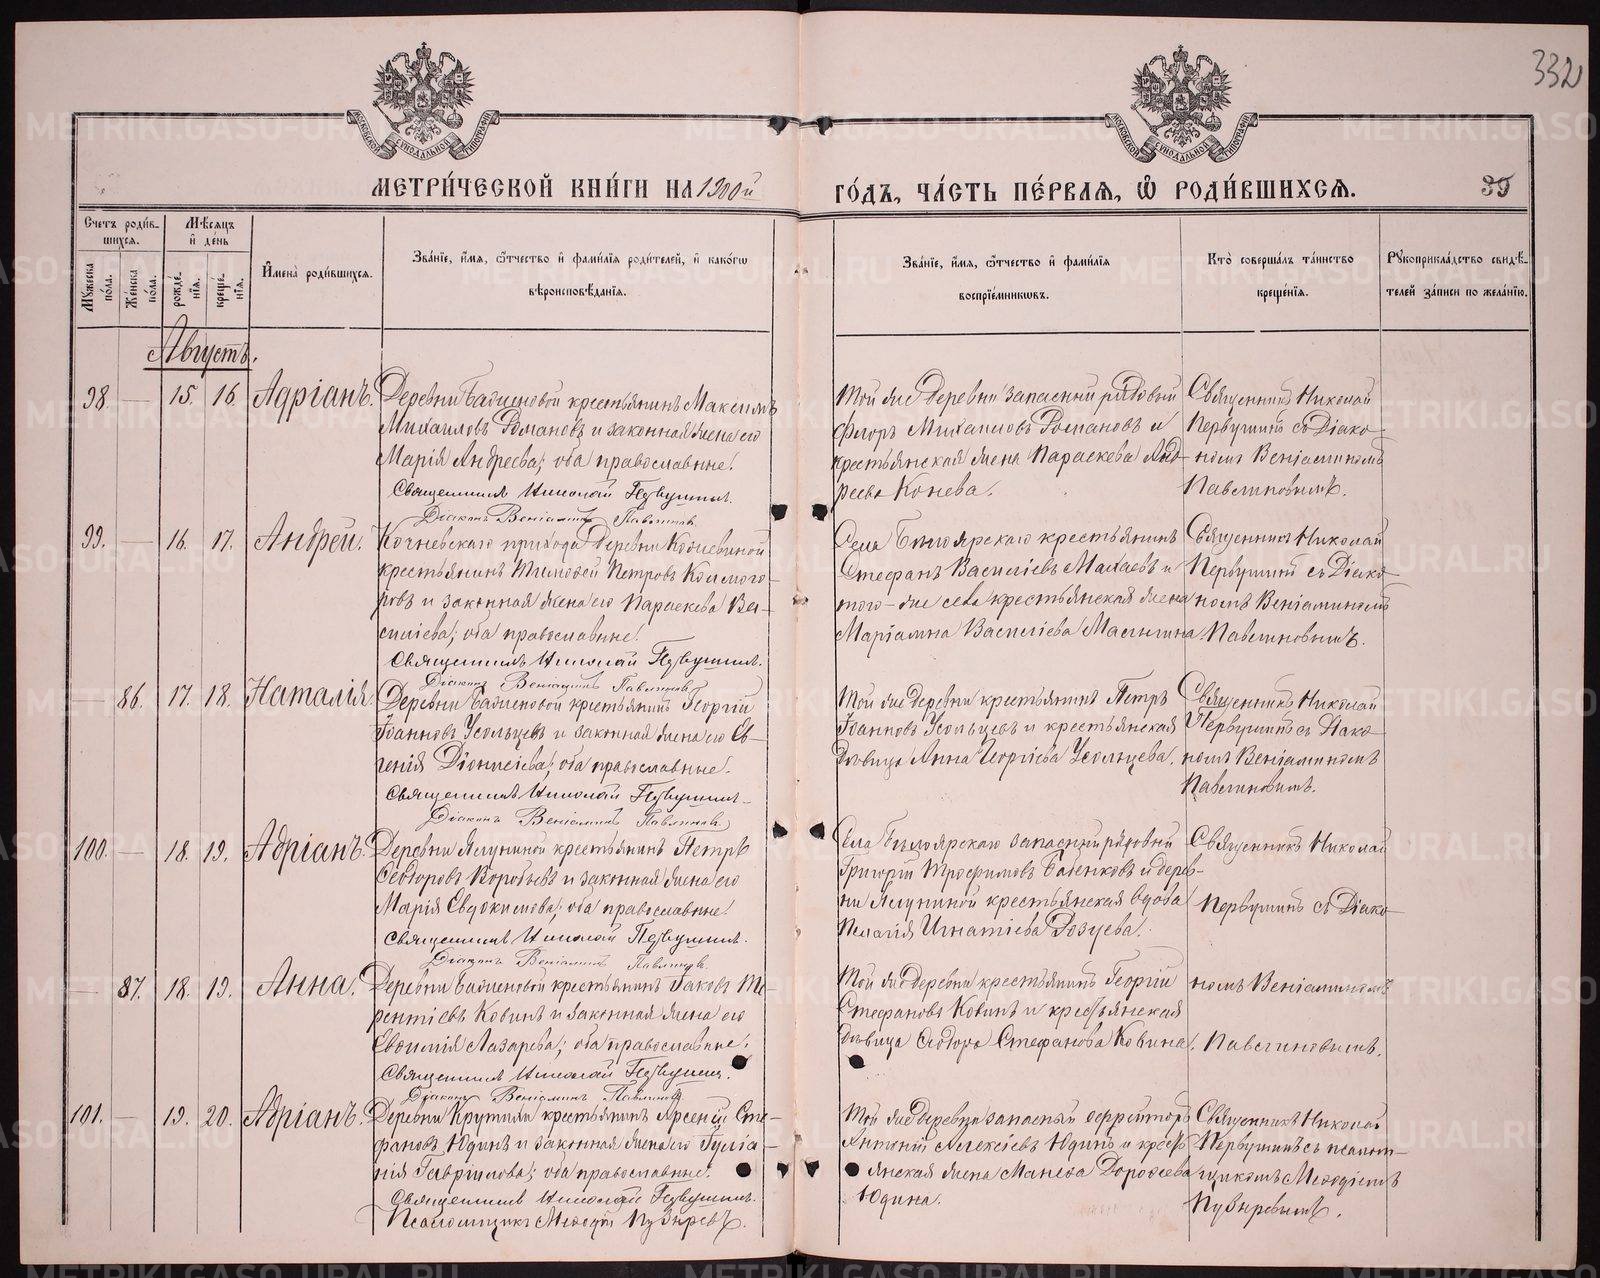 332
МОСКОВСКОЙ СѴНОДАЛЬНОЙ ТИПОГРАФІИ
МОСКОВСКОЙ СѴНОДАЛЬНОЙ ТИПОГРАФІИ
МЕТРИ́ЧЕСКОЙ КНИ́ГИ НА 1900й ГО́ДЪ, ЧА́СТЬ ПЕ́РВАѦ, Ѽ РОДИ́ВШИХСѦ.
39
Счетъ роди́вшихсѧ.
Мꙋ́жеска по́ла.
Же́нска по́ла.
Мѣ́сѧцъ и҆ де́нь
рожде́нїѧ.
креще́нїѧ.
И҆мена̀ роди́вшихсѧ.
Зва́нїе, и҆́мѧ, ѻ҆́тчество и҆ фами́лїѧ роди́телей, и҆ како́гѡ вѣроисповѣ́данїѧ.
Зва́нїе, и҆́мѧ, ѻ҆́тчество и҆ фами́лїѧ воспрїе́мникѡвъ.
Кто̀ соверша́лъ та́инство креще́нїѧ.
Рꙋкоприкла́дство свидѣ́телей за́писи по жела́нїю.
Августъ.
98. — 15. 16. Адріанъ.
Деревни Бабиновой крестьянинъ Максимъ
Михаиловъ Романовъ и законная жена его
Марія Андреева; оба православные.
Священникъ Николай Первушинъ.
Діаконъ Веніаминъ Павлиновъ.
Той же деревни запасный рядовый
Флоръ Михаиловъ Романовъ и
крестьянская жена Параскева Анд-
реева Конева.
Священникъ Николай
Первушинъ съ Діако-
номъ Веніаминомъ
Павлиновымъ.
99. — 16. 17. Андрей.
Кочневскаго прихода деревни
крестьянинъ Тимофей Петровъ Колмого-
ровъ и законная жена его Параскева Ва-
силіева; оба православные.
Священникъ Николай Первушинъ.
Діаконъ Веніаминъ Павлиновъ.
Села Бѣлоярскаго крестьянинъ
Стефанъ Василіевъ и
того-же села крестьянская жена
Маріамна Василіева
Священникъ Николай
Первушинъ съ Діако-
номъ Веніаминомъ
Павлиновымъ.
— 86. 17. 18. Наталія.
Деревни Бабиновой крестьянинъ Георгій
Іоанновъ Усольцевъ и законная жена его Ев-
генія Діонисіева; оба православные.
Священникъ Николай Первушинъ.
Діаконъ Веніаминъ Павлиновъ.
Той же деревни крестьянинъ Петръ
Іоанновъ Усольцевъ и крестьянская
дѣвица Анна Георгіева Усольцева.
Священникъ Николай
Первушинъ съ Діако-
номъ Веніаминомъ
Павлиновымъ.
100. — 18. 19. Адріанъ.
Деревни Ялуниной крестьянинъ Петръ
Ѳеодоровъ Воробьевъ и законная жена его
Марія Евдокимова; оба православные.
Священникъ Николай Первушинъ.
Діаконъ Веніаминъ Павлиновъ.
Села Бѣлоярскаго запасный рядовый
Григорій Трофимовъ и дерев-
ни Ялуниной крестьянская вдова
Пелагія Игнатіева
Священникъ Николай
Первушинъ съ Діако-
— 87. 18. 19. Анна.
Деревни Бабиновой крестьянинъ Іаковъ Те-
рентіевъ Ковинъ и законная жена его
Евфимія Лазарева; оба православные.
Священникъ Николай Первушинъ.
Діаконъ Веніаминъ Павлиновъ
Той же деревни крестьянинъ Георгій
Стефановъ Ковинъ и крестьянская
дѣвица Ѳеодора Стефанова Ковина.
номъ Веніаминомъ
Павлиновымъ.
101. — 19. 20. Адріанъ.
Деревни Крутихи крестьянинъ Арсеній Сте-
фановъ Юдинъ и законная жена его Іуліа-
нія Гавріилова; оба православные.
Священникъ Николай Первушинъ.
Псаломщикъ Меѳодій Пузыревъ.
Той же деревни запасный ефрейторъ
Антоній Алексіевъ Юдинъ и крест-
янская жена Дороѳеева
Юдина.
Священникъ Николай
Первушинъ съ псалом-
щикомъ Меѳодіемъ
Пузыревымъ.
METRIKI.GASO-URAL.RU